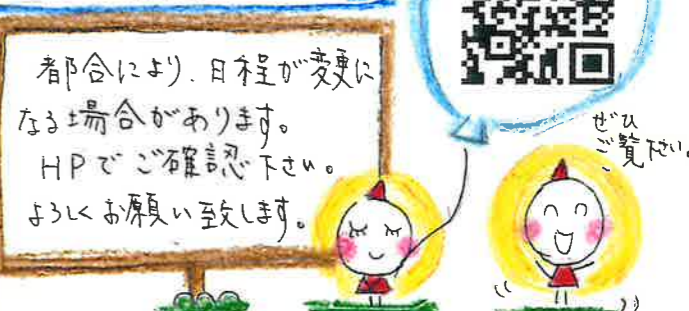 都合により、日程が変更に
なる場合があります。
HPでご確認下さい。
よろしくお願い致します。
ぜひ
ご覧下さい。